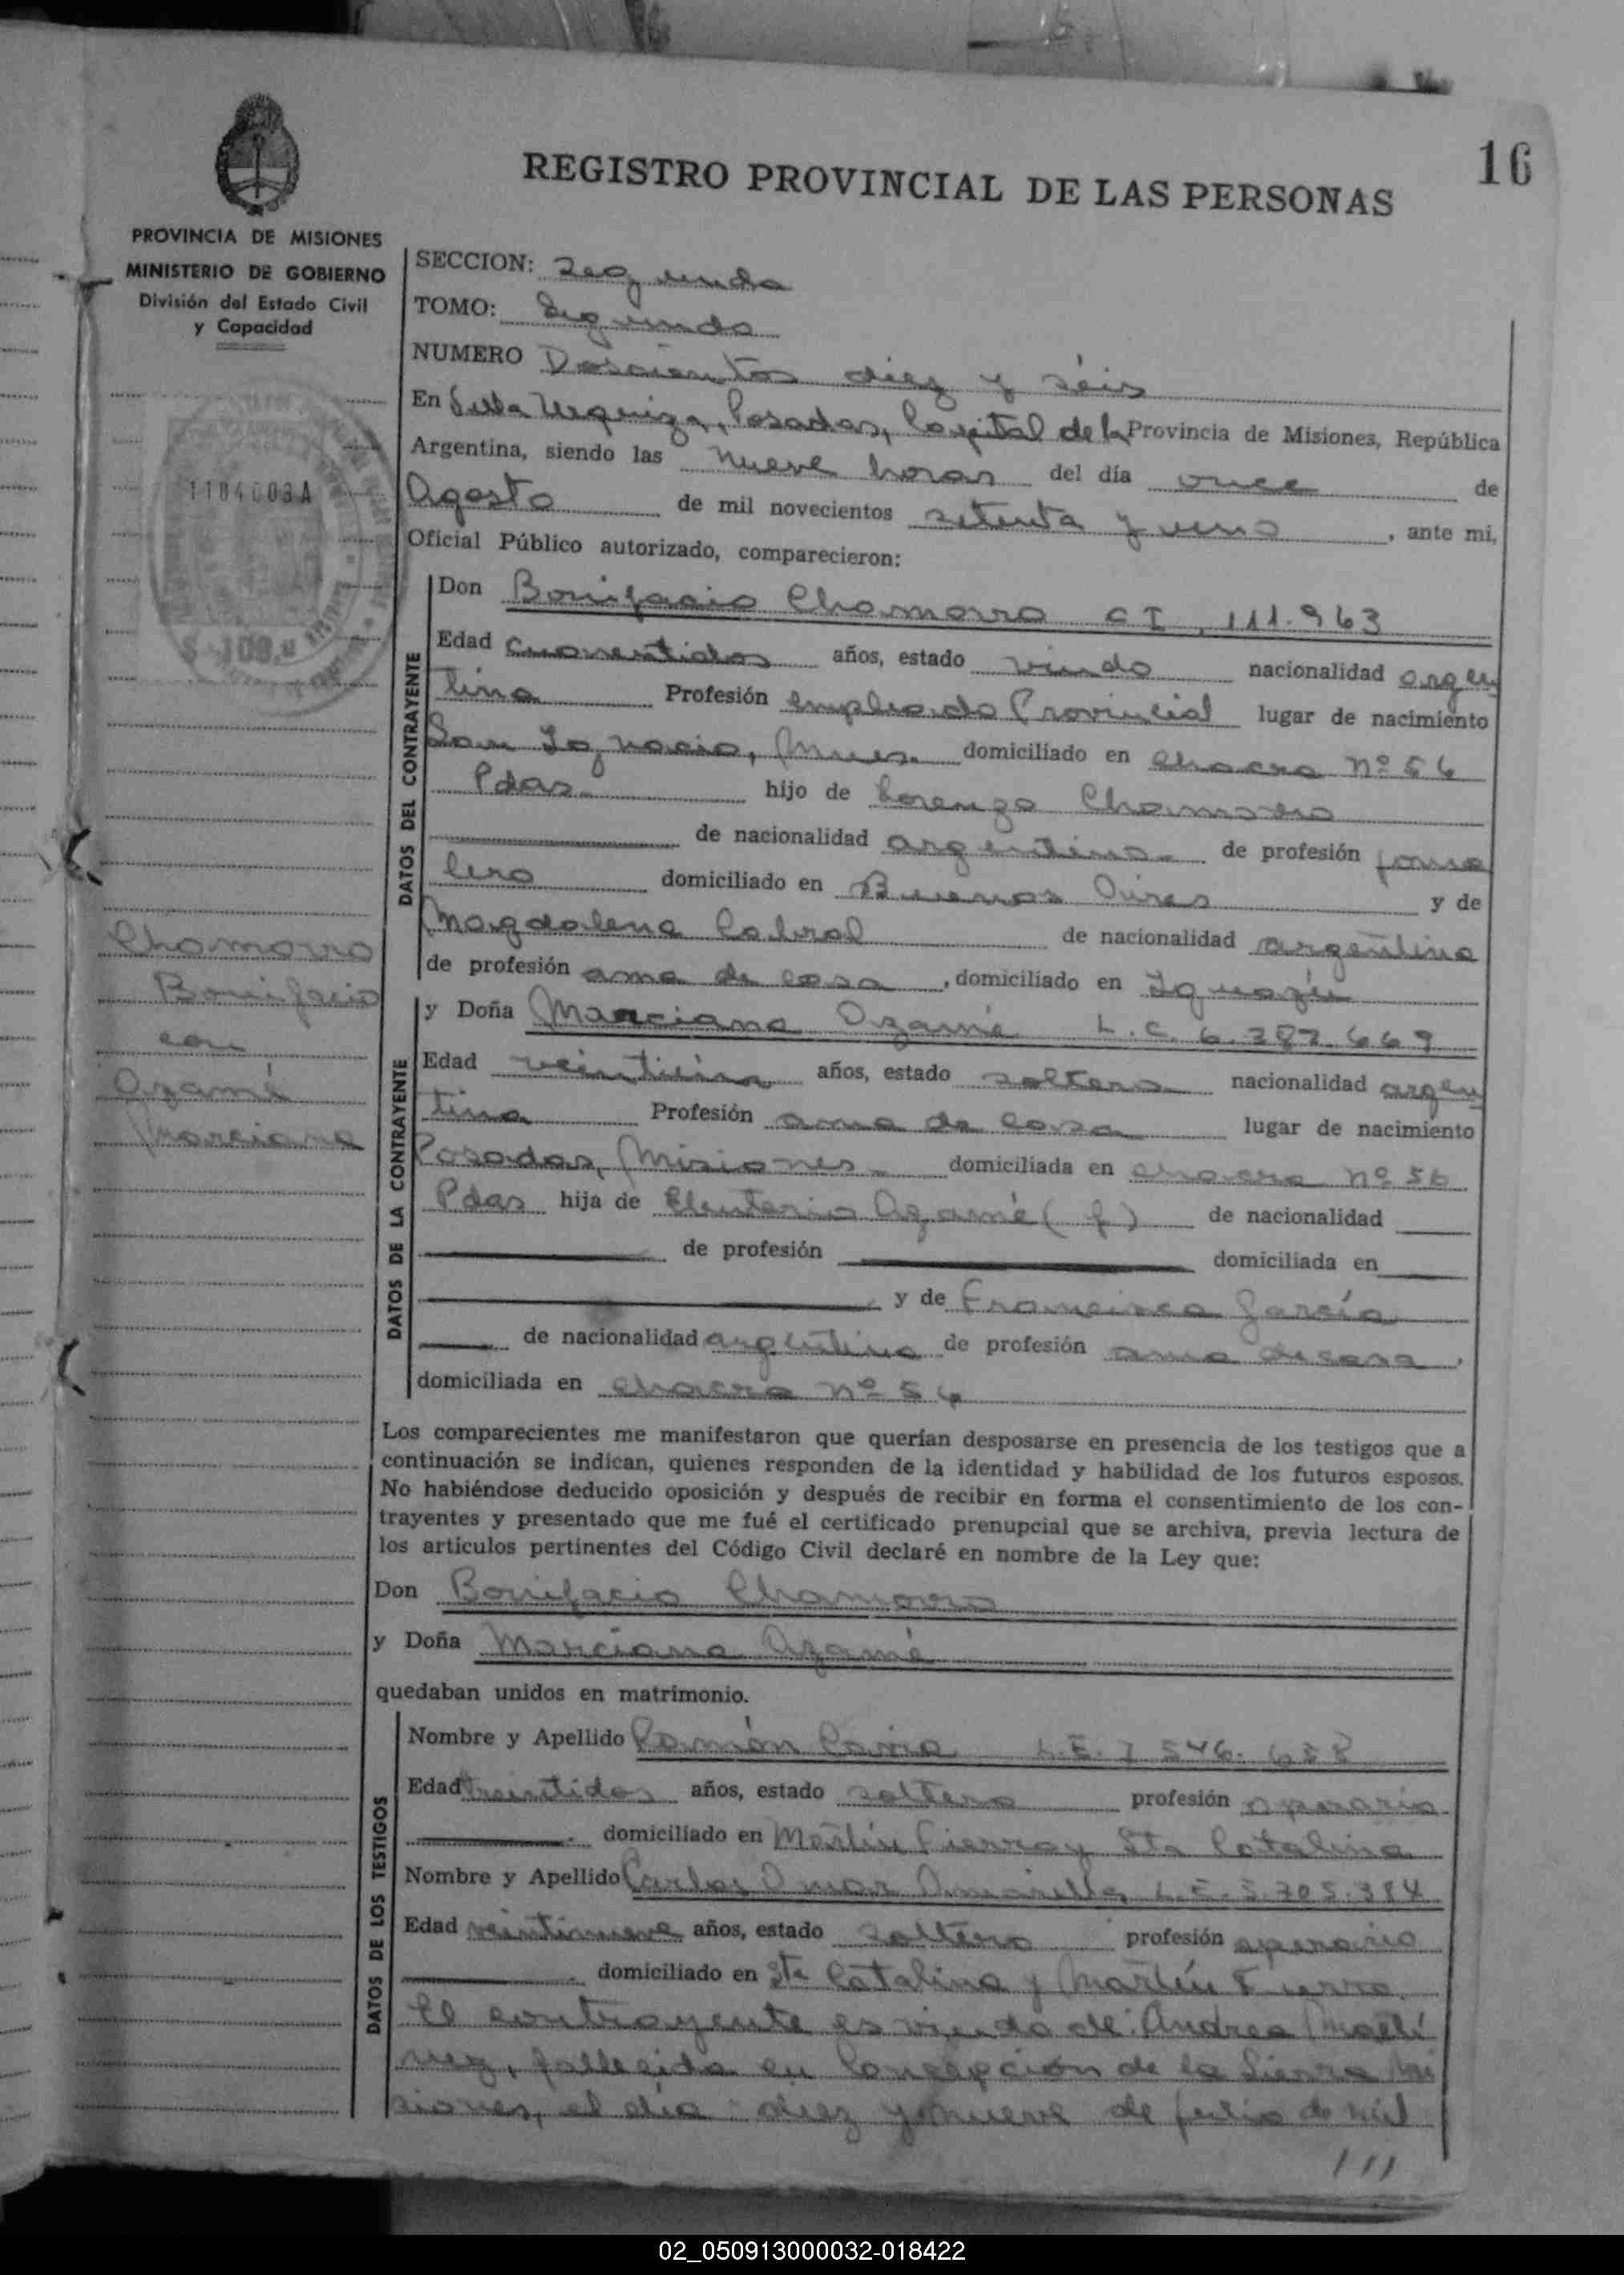 16
REGISTRO PROVINCIAL DE LAS PERSONAS
PROVINCIA DE MISIONES
MINISTERIO DE GOBIERNO
División del Estado Civil
y Capacidad
1104003A
Chamorro
Bonifacio
con
Ozamé
Marciana
SECCION: Segunda
TOMO: Segundo
NUMERO Doscientos diez y séis
En Villa Urquiza, Posadas, Capital de la Provincia de Misiones, República
Argentina, siendo las nueve horas del día once de
Agosto de mil novecientos setenta y uno, ante mi,
Oficial Público autorizado, comparecieron:
DATOS DEL CONTRAYENTE
Don Bonifacio Chamorro C I. 111.963
Edad cuarentidos años, estado viudo nacionalidad argen
tina Profesión empleado Provincial lugar de nacimiento
San Ignacio, Mnes. domiciliado en chacra Nº 56
Pdas. hijo de Lorenzo Chamorro
de nacionalidad argentino de profesión jorna
lero domiciliado en Buenos Aires y de
Magdalena Cabral de nacionalidad argentina
de profesión ama de casa, domiciliado en Iguazú
DATOS DE LA CONTRAYENTE
y Doña Marciana Ozamé L.C. 6.387.669
Edad años, estado soltera nacionalidad argen
tina Profesión ama de casa lugar de nacimiento
Posadas, Misiones domiciliada en chacra Nº 56
Pdas hija de Eleuterio Ozamé (f) de nacionalidad
de profesión domiciliada en
y de Francisca García
de nacionalidad argentina de profesión ama de casa,
domiciliada en chacra Nº 56
Los comparecientes me manifestaron que querían desposarse en presencia de los testigos que a
continuación se indican, quienes responden de la identidad y habilidad de los futuros esposos.
No habiéndose deducido oposición y después de recibir en forma el consentimiento de los con-
trayentes y presentado que me fué el certificado prenupcial que se archiva, previa lectura de
los artículos pertinentes del Código Civil declaré en nombre de la Ley que:
Don Bonifacio Chamorro
y Doña Marciana Ozamé
quedaban unidos en matrimonio.
DATOS DE LOS TESTIGOS
Nombre y Apellido Ramón L.E. 7.546.658
Edad treintidos años, estado soltero profesión operario
domiciliado en Martín Fierro y Sta Catalina
Nombre y Apellido Carlos Omar Amarilla L.E. 5.705.384
Edad veintinueve años, estado soltero profesión operario
domiciliado en Sta Catalina y Martín Fierro.
El contrayente es viudo de: Andrea Martí
nez, fallecida en Concepción de la Sierra Mi
siones, el día diez y nueve de julio de mil
///
02_050913000032-018422